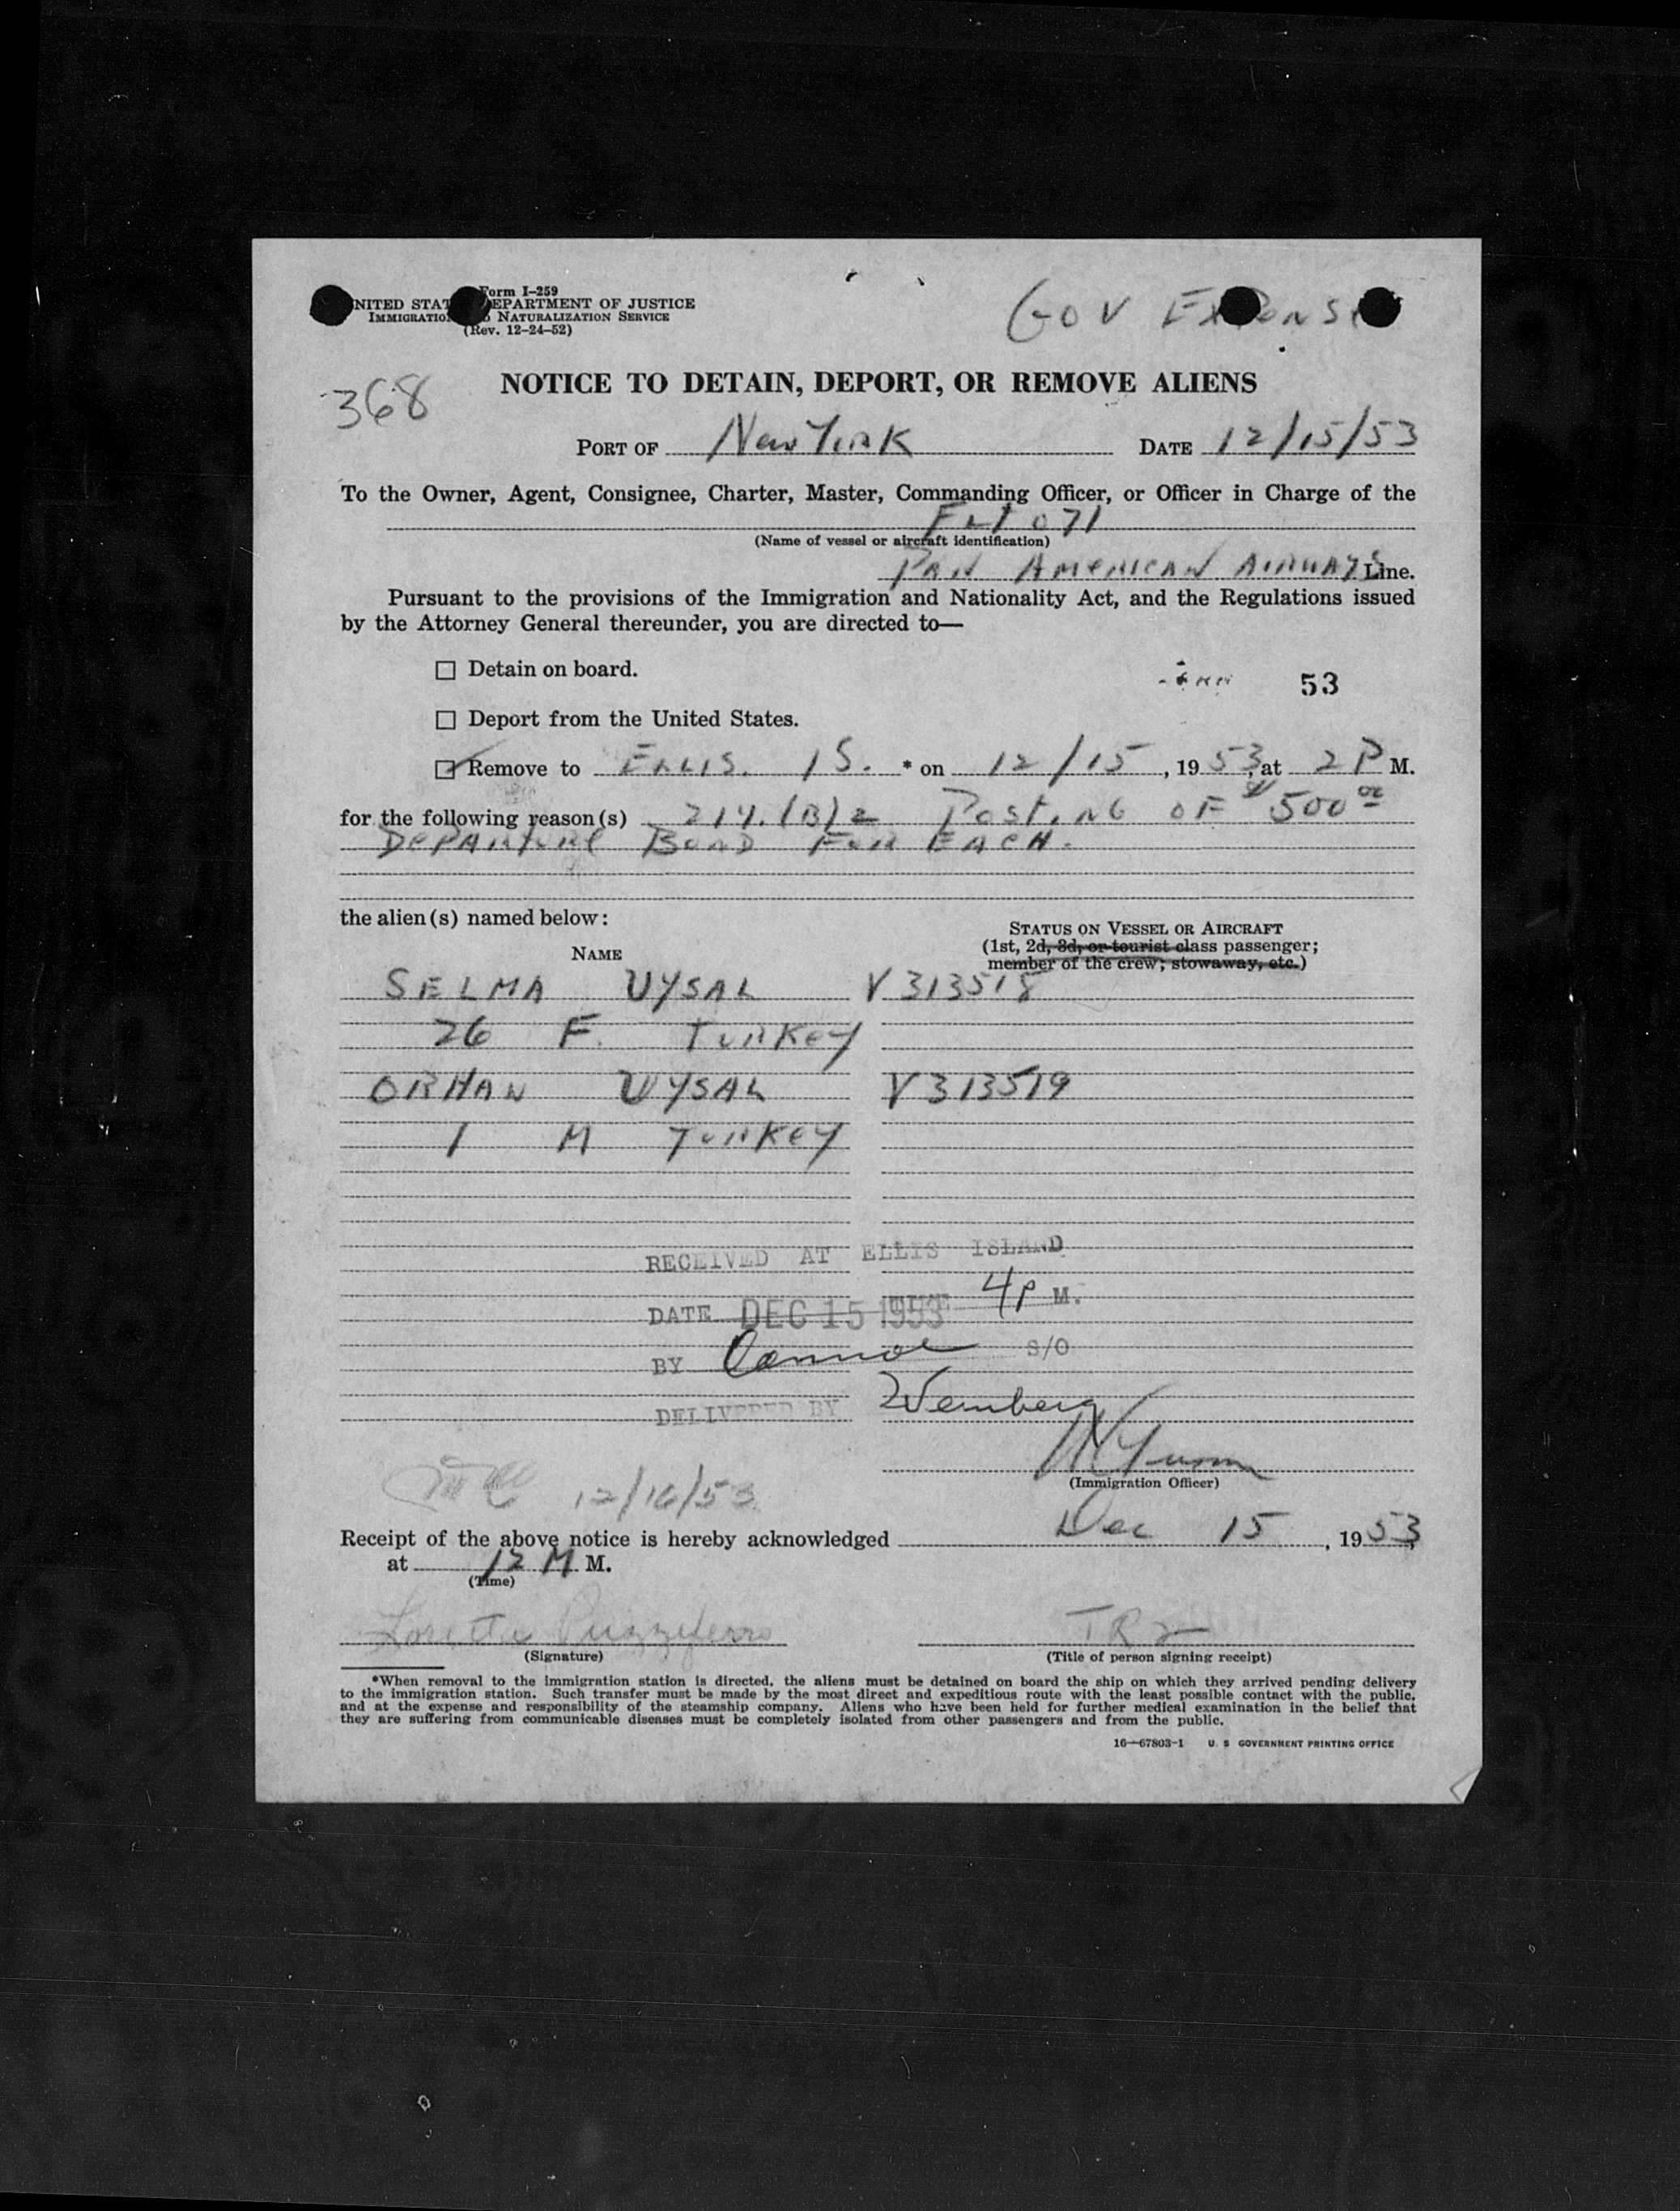 Form I-259
UNITED STATES DEPARTMENT OF JUSTICE
IMMIGRATION AND NATURALIZATION SERVICE
(Rev. 12-24-52)
GOV EXPENSE
368
NOTICE TO DETAIN, DEPORT, OR REMOVE ALIENS
PORT OF New York DATE 12/15/53
To the Owner, Agent, Consignee, Charter, Master, Commanding Officer, or Officer in Charge of the
FLT 071
(Name of vessel or aircraft identification)
PAN AMERICAN AIRWAYS Line.
Pursuant to the provisions of the Immigration and Nationality Act, and the Regulations issued
by the Attorney General thereunder, you are directed to—
☐ Detain on board.
53
☐ Deport from the United States.
☑ Remove to ELLIS. IS. * on 12/15, 1953, at 2 P M.
for the following reason(s) 214.(B)2 POSTING OF $500 00
DEPARTURE BOND FOR EACH.
the alien(s) named below:
STATUS ON VESSEL OR AIRCRAFT
NAME
(1st, 2d, 3d, or tourist class passenger;
member of the crew; stowaway, etc.)
SELMA UYSAL V313518
26 F. TURKEY
ORHAN UYSAL V313519
1 M TURKEY
RECEIVED AT ELLIS ISLAND
DATE DEC 15 1953 TIME 4P M.
BY Connor S/O
DELIVERED BY Wernberg
(Immigration Officer)
12/16/53
Receipt of the above notice is hereby acknowledged Dec 15, 1953,
at 12 M M.
(Time)
Loretta Puzziferro TR2
(Signature) (Title of person signing receipt)
*When removal to the immigration station is directed, the aliens must be detained on board the ship on which they arrived pending delivery
to the immigration station. Such transfer must be made by the most direct and expeditious route with the least possible contact with the public,
and at the expense and responsibility of the steamship company. Aliens who have been held for further medical examination in the belief that
they are suffering from communicable diseases must be completely isolated from other passengers and from the public.
16—67803-1 U. S GOVERNMENT PRINTING OFFICE